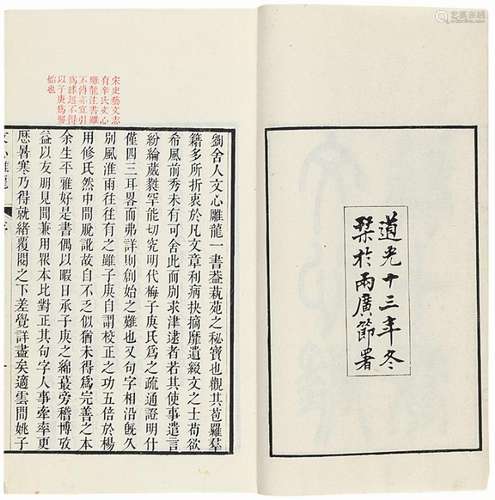 道光十三年冬
栞於兩廣節署
宋史藝文志
有辛氏文心
雕龍注書雖
不傳亦宜引
爲緣起不得
以子庚爲剏
始也
劉舍人文心雕龍一書蓋蓺苑之秘寶也觀其苞羅羣
籍多所折衷於凡文章利病抉摘靡遺綴文之士苟欲
希風前秀未有可舍此而别求津逮者若其使事遣言
紛綸葳蕤罕能切究明代梅子庚氏爲之疏通證明什
僅四三耳畧而弗詳則剏始之難也又句字相沿旣久
别風淮雨往往有之雖子庚自謂校正之功五倍於楊
用修氏然中間脫訛故自不乏似猶未得爲完善之本
余生平雅好是書偶以暇日承子庚之綿蕞旁稽博攷
益以友朋見聞兼用衆本比對正其句字人事牽率更
歷暑寒乃得就緒覆閱之下差覺詳盡矣適雲間姚子
文心雕龍